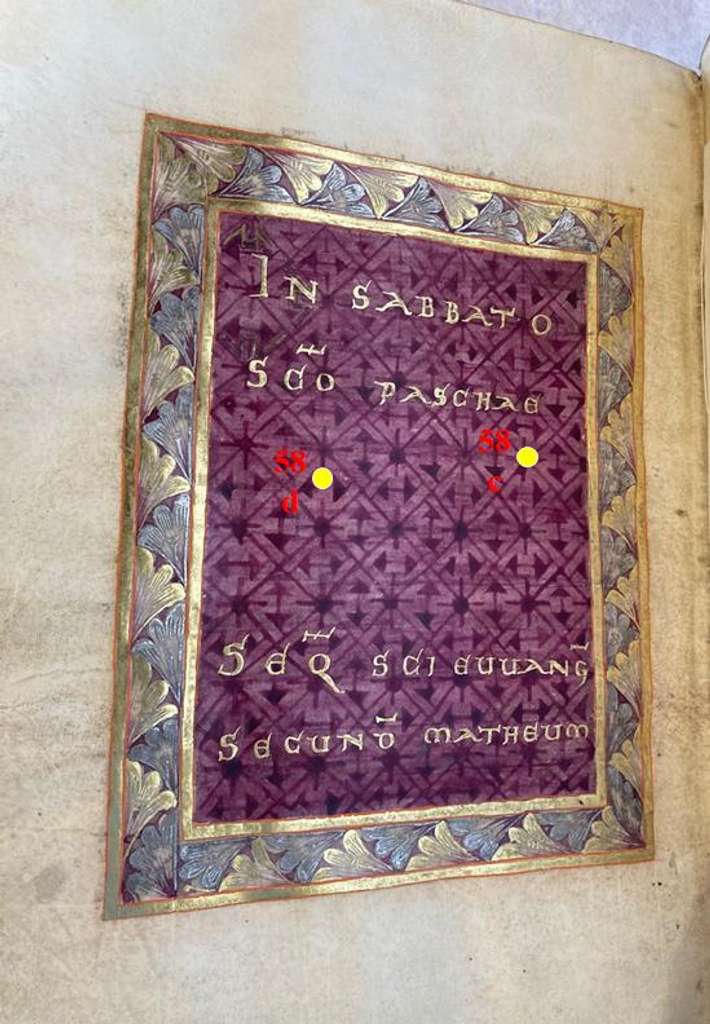 IN SABBATO
SC̄O PASCHAE
58 58
d c
SEQ̄ SCI EUUANḠ
SECUND̄ MATHEUM